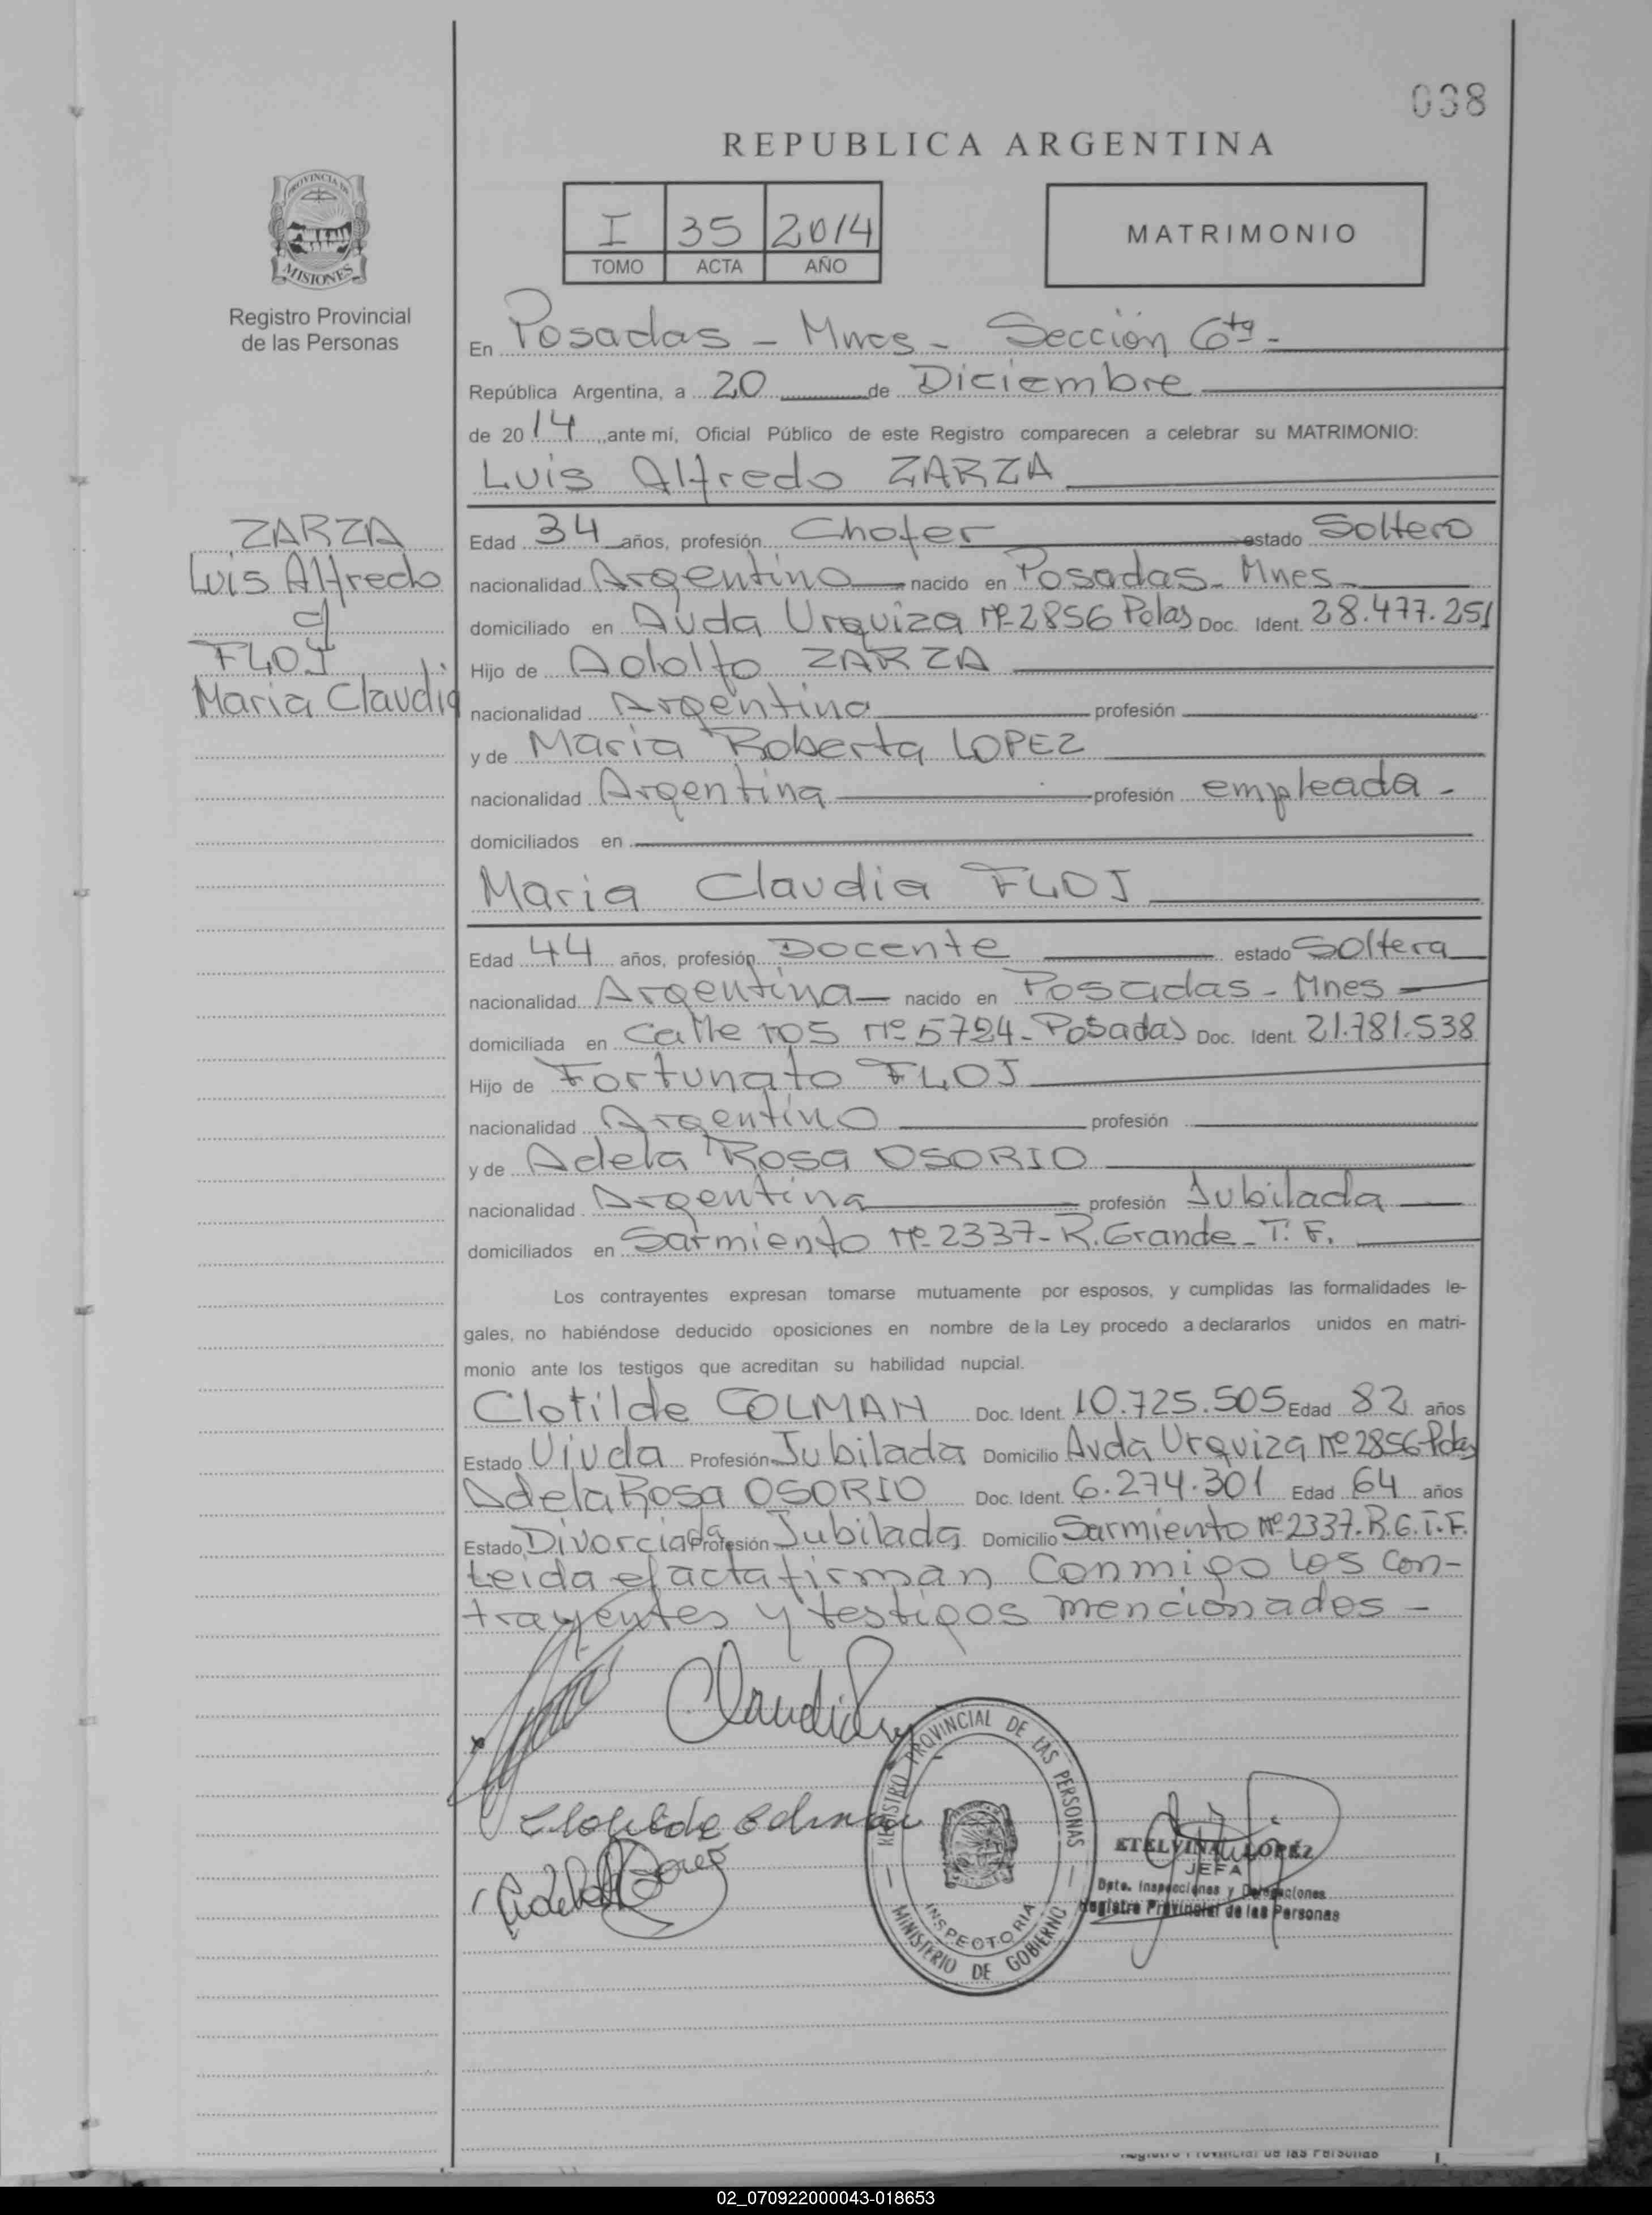 038
REPUBLICA ARGENTINA
PROVINCIA DE
MISIONES
Registro Provincial
de las Personas
I 35 2014
TOMO ACTA AÑO
MATRIMONIO
En Posadas - Mnes - Sección 6ta -
República Argentina, a 20 de Diciembre
de 2014, ante mí, Oficial Público de este Registro comparecen a celebrar su MATRIMONIO:
Luis Alfredo ZARZA
ZARZA
Luis Alfredo
c/
FLOJ
Maria Claudia
Edad 34 años, profesión Chofer estado Soltero
nacionalidad Argentino nacido en Posadas - Mnes -
domiciliado en Avda Urquiza Nº 2856 Pdas Doc. Ident. 28.477.251
Hijo de Adolfo ZARZA
nacionalidad Argentina profesión
y de Maria Roberta LOPEZ
nacionalidad Argentina profesión empleada -
domiciliados en
Maria Claudia FLOJ
Edad 44 años, profesión Docente estado Soltera
nacionalidad Argentina nacido en Posadas - Mnes
domiciliada en Calle 105 Nº 5724 - Posadas Doc. Ident. 21.781.538
Hijo de Fortunato FLOJ
nacionalidad Argentino profesión
y de Adela Rosa OSORIO
nacionalidad Argentina profesión Jubilada
domiciliados en Sarmiento Nº 2337 - R. Grande - T. F.
Los contrayentes expresan tomarse mutuamente por esposos, y cumplidas las formalidades le-
gales, no habiéndose deducido oposiciones en nombre de la Ley procedo a declararlos unidos en matri-
monio ante los testigos que acreditan su habilidad nupcial.
Clotilde COLMAN Doc. Ident. 10.725.505 Edad 82 años
Estado Viuda Profesión Jubilada Domicilio Avda Urquiza Nº 2856 - Pdas
Adela Rosa OSORIO Doc. Ident. 6.274.301 Edad 64 años
Estado Divorciada Profesión Jubilada Domicilio Sarmiento Nº 2337. R.G.T.F.
Leida el acta firman conmigo los con-
trayentes y testigos mencionados -
Clotilde Colman
REGISTRO PROVINCIAL DE LAS PERSONAS
INSPECTORIA
MINISTERIO DE GOBIERNO
ETELVINA LOPEZ
JEFA
Dpto. Inspecciones y Delegaciones
Registro Provincial de las Personas
Registro Provincial de las Personas
02_070922000043-018653